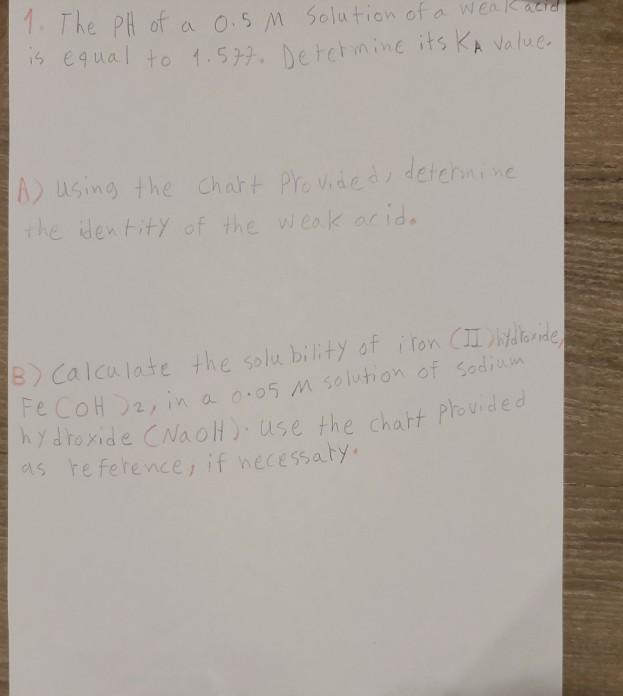 1. The PH of a 0.5 M Solution of a weak acid
is equal to 1.577. Determine its KA value.
A) using the chart provided, determine
the identity of the weak acid.
B) Calculate the solubility of iron (II) hydroxide,
Fe(OH)2, in a 0.05 M solution of sodium
hydroxide (NaOH). use the chart provided
as reference, if necessary.